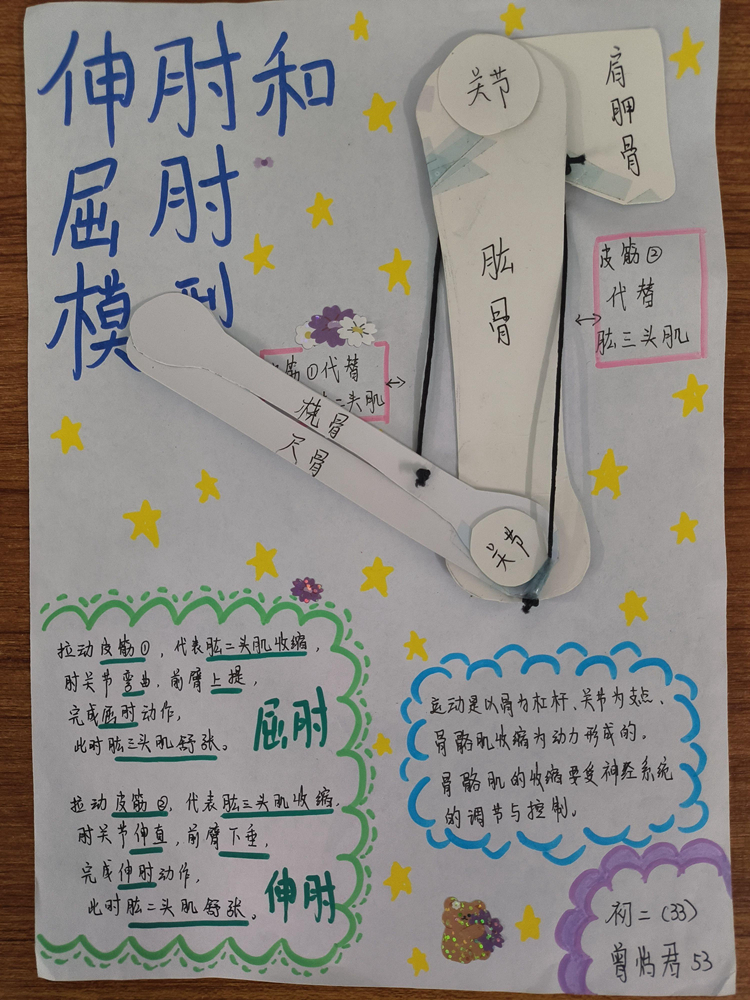 伸肘和
屈肘
模型
关节
肩胛骨
肱骨
皮筋②
代替
肱三头肌
筋①代替
二头肌
桡骨
尺骨
关节
拉动皮筋①,代表肱二头肌收缩,
肘关节弯曲,前臂上提,
完成屈肘动作,
此时肱三头肌舒张。
屈肘
拉动皮筋②,代表肱三头肌收缩,
肘关节伸直,前臂下垂,
完成伸肘动作,
此时肱二头肌舒张。
伸肘
运动是以骨为杠杆、关节为支点、
骨骼肌收缩为动力形成的。
骨骼肌的收缩要受神经系统
的调节与控制。
初二(33)
曾 君 53